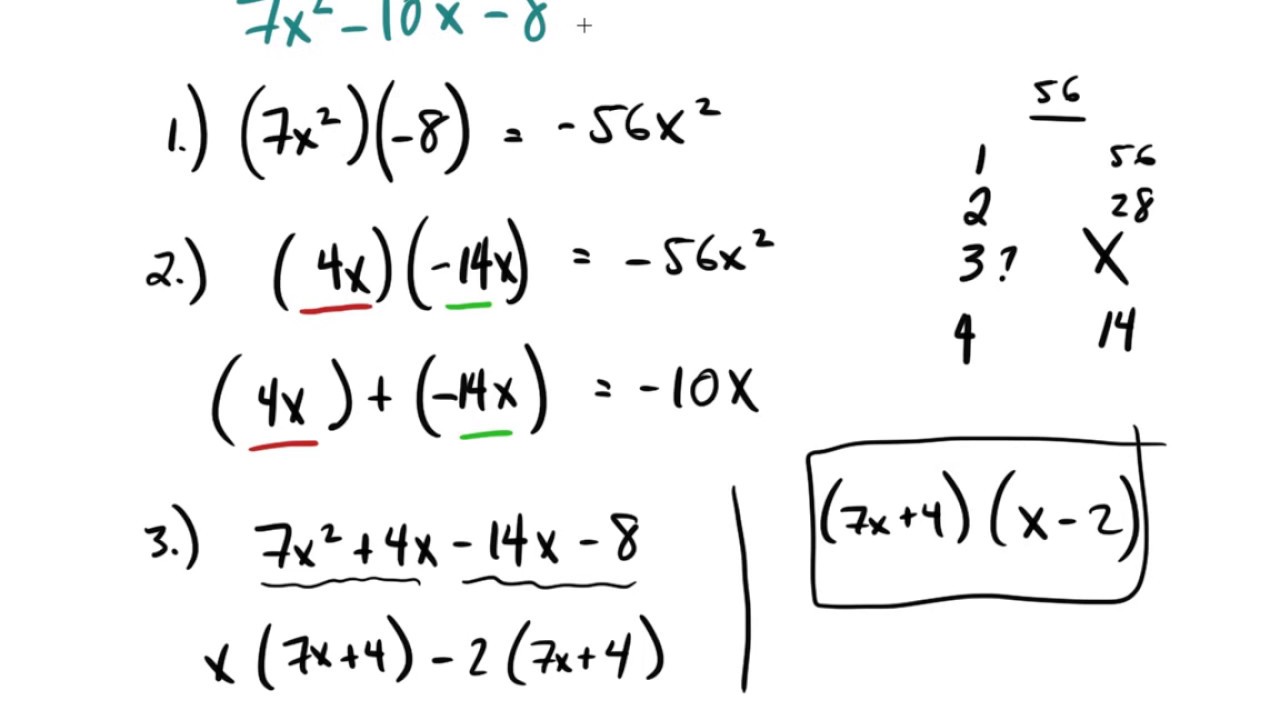 7x² - 10x - 8
1.) (7x²)(-8) = -56x²
2.) (4x)(-14x) = -56x²
(4x) + (-14x) = -10x
3.) 7x² + 4x - 14x - 8
x(7x+4) - 2(7x+4)
56
1 56
2 28
3? X
4 14
(7x+4)(x-2)